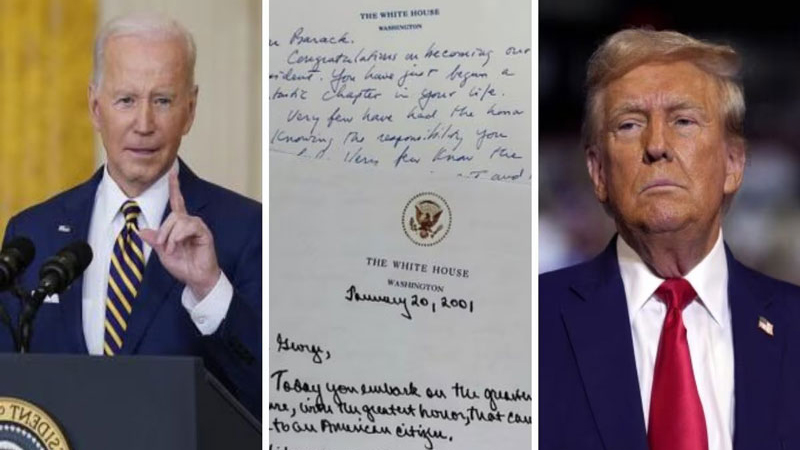 THE WHITE HOUSE
WASHINGTON
Barack,
Congratulations on becoming our
sident. You have just begun a
tastic chapter in your life.
Very few have had the honor
Knowing the responsibility you
Very few know the
and
THE WHITE HOUSE
WASHINGTON
January 20, 2001
George,
Today you embark on the greatest
re, with the greatest honor, that can
to an American citizen.
SIDENT